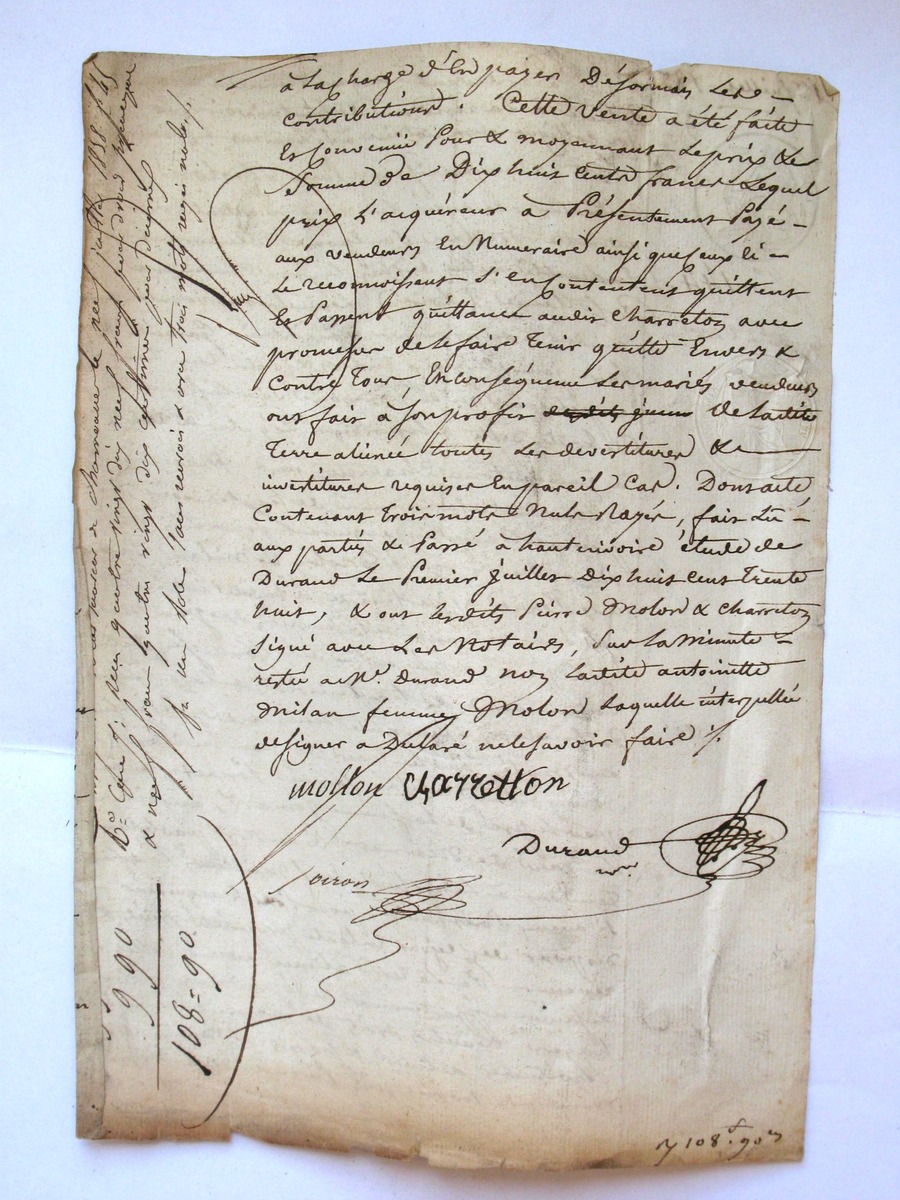 à la charge d'en payer Désormais les
contributions. Cette vente a été faite
et convenüe Pour & moyennant le prix &
Somme de Dix huit cents francs lequel
prix l'acquéreur à Présentement Payé
aux vendeurs en Numeraire ainsi que ceux ci
le reconnoissent s'en contentent quittent
et Passent quittance audit Charreton avec
promesse de le faire tenir quitte Envers &
Contre Tous, En conséquence les mariés vendeurs
ont fait à son profit de ladite
Terre alienée toutes les devestitures &
investitures requises En pareil Cas. Dont acte
Contenant trois mots Nuls Rayés, fait Lu
aux parties & Passé à hauterivoire étude de
Durand Le Premier Juillet Dix huit cent Trente
huit, & ont lesdits Pierre Molon & Charreton
signé avec Les Notaires, Sur la Minute
restée a Me. Durand non ladite antoinette
Milan femme Molon laquelle interpellée
de signer a Déclaré ne le savoir faire ./.
mollon Charretton
Durand
nre.
Poiron
juillet 1838
quatre vingt dix neuf francs
& neuf francs quatre vingt dix centimes pour décime
trois mots rayés nuls ./.
9 90
108=90
108 f. 90 c